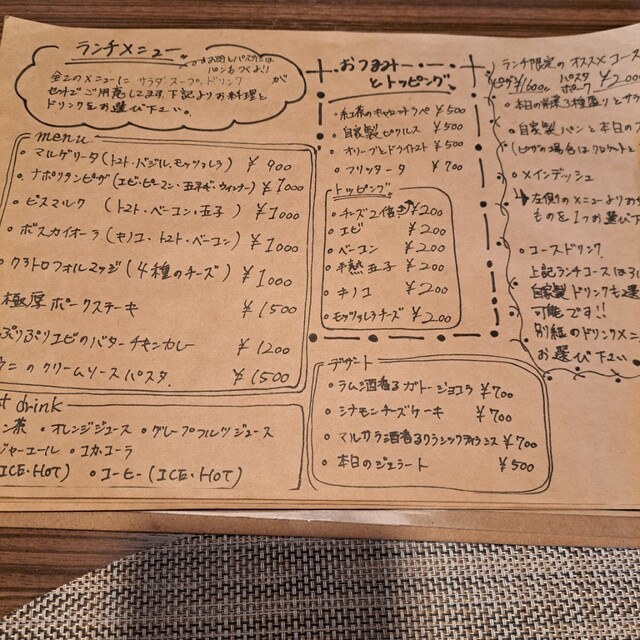 ランチメニュー
お肉とパスタには
パンもつくよ!!
全てのメニューに サラダ スープ ドリンク が
セットでご用意してます 下記よりお料理と
ドリンクをお選び下さい。
menu
・マルゲリータ(トマト・バジル・モッツァレラ) ¥900
・ナポリタンピザ(エビ・ピーマン・玉子・ウィンナー) ¥1000
・ビスマルク (トマト・ベーコン・玉子) ¥1000
・ボスカイオーラ(キノコ・トマト・ベーコン) ¥1000
・クアトロフォルマッジ(4種のチーズ) ¥1000
極厚 ポークステーキ ¥1500
ぷりぷりエビのバターチキンカレー ¥1200
ウニ の クリームソースパスタ ¥1500
drink
ン茶 ・オレンジジュース ・グレープフルツジュース
ジャーエール ・コカコーラ
(ICE・HOT) ・コーヒー(ICE・HOT)
おつまみ
とトッピング
・紅茶のキャロットラペ ¥500
・自家製ピクルス ¥500
・オリーブとドライトマト ¥500
・フリッタータ ¥700
トッピング
・チーズ2倍 ¥200
・エビ ¥200
・ベーコン ¥200
・半熟玉子 ¥200
・キノコ ¥200
・モッツァレラチーズ ¥200
デザート
・ラム酒香るガトーショコラ ¥700
・シナモンチーズケーキ ¥700
・マルサラ酒香るクラシックティラミス ¥700
・本日のジェラート ¥500
ランチ限定の オススメコース
ピザ ¥1600 パスタ
ポーク
・本日の前菜3種盛りとサラ
・自家製パンと本日の
(ピザの場合は
・メインディッシュ
左側のメニューよりお
ものを1つお選び下
・コースドリンク
上記ランチコースは
自家製ドリンクも選
可能です!!
別紙のドリンクメニ
お選び下さい